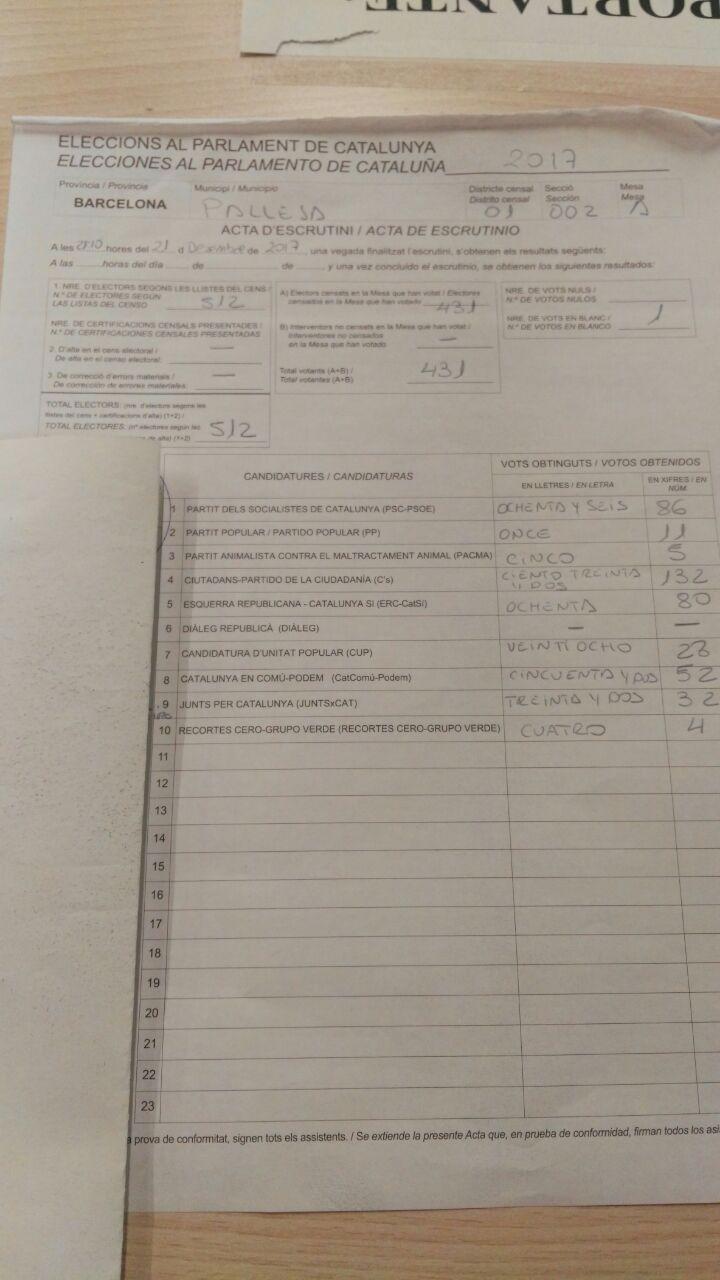 PORTANTE.
ELECCIONS AL PARLAMENT DE CATALUNYA
ELECCIONES AL PARLAMENTO DE CATALUÑA 2017
Província / Provincia Municipi / Municipio Districte censal Secció Mesa
Distrito censal Sección Mesa
BARCELONA PALLEJA 01 002 A
ACTA D'ESCRUTINI / ACTA DE ESCRUTINIO
A les hores del 21 d Desembre de 2017, una vegada finalitzat l'escrutini, s'obtenen els resultats següents:
A las horas del día de de , y una vez concluido el escrutinio, se obtienen los siguientes resultados:
1. NRE. D'ELECTORS SEGONS LES LLISTES DEL CENS /
N.º DE ELECTORES SEGÚN
LAS LISTAS DEL CENSO 512
NRE. DE CERTIFICACIONS CENSALS PRESENTADES /
N.º DE CERTIFICACIONES CENSALES PRESENTADAS
2. D'alta en el cens electoral / —
De alta en el censo electoral:
3. De correcció d'errors materials / —
De corrección de errores materiales:
TOTAL ELECTORS: (nre. d'electors segons les
llistes del cens + certificacions d'alta) (1+2) /
TOTAL ELECTORES: (nº electores según las 512
de alta) (1+2)
A) Electors censats en la Mesa que han votat / Electores
censados en la Mesa que han votado 431
B) Interventors no censats en la Mesa que han votat /
Interventores no censados
en la Mesa que han votado —
Total votants (A+B) /
Total votantes (A+B) 431
NRE. DE VOTS NULS /
N.º DE VOTOS NULOS
NRE. DE VOTS EN BLANC / 1
N.º DE VOTOS EN BLANCO
CANDIDATURES / CANDIDATURAS VOTS OBTINGUTS / VOTOS OBTENIDOS
EN LLETRES / EN LETRA EN XIFRES / EN NÚM.
1 PARTIT DELS SOCIALISTES DE CATALUNYA (PSC-PSOE) OCHENTA Y SEIS 86
2 PARTIT POPULAR / PARTIDO POPULAR (PP) ONCE 11
3 PARTIT ANIMALISTA CONTRA EL MALTRACTAMENT ANIMAL (PACMA) CINCO 5
4 CIUTADANS-PARTIDO DE LA CIUDADANÍA (C's) CIENTO TREINTA Y DOS 132
5 ESQUERRA REPUBLICANA - CATALUNYA SÍ (ERC-CatSí) OCHENTA 80
6 DIÀLEG REPUBLICÀ (DIÀLEG) — —
7 CANDIDATURA D'UNITAT POPULAR (CUP) VEINTIOCHO 28
8 CATALUNYA EN COMÚ-PODEM (CatComú-Podem) CINCUENTA Y DOS 52
9 JUNTS PER CATALUNYA (JUNTSxCAT) TREINTA Y DOS 32
10 RECORTES CERO-GRUPO VERDE (RECORTES CERO-GRUPO VERDE) CUATRO 4
11
12
13
14
15
16
17
18
19
20
21
22
23
a prova de conformitat, signen tots els assistents. / Se extiende la presente Acta que, en prueba de conformidad, firman todos los asi